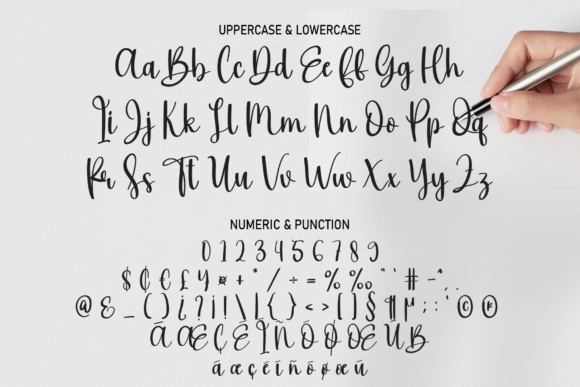 UPPERCASE & LOWERCASE
Aa Bb Cc Dd Ee Ff Gg Hh
Ii Jj Kk Ll Mm Nn Oo Pp Qq
Rr Ss Tt Uu Vv Ww Xx Yy Zz
NUMERIC & PUNCTION
0 1 2 3 4 5 6 7 8 9
$ ₵ € £ ¥ ¤ + * / ÷ = % ‰ " ' # - ^ . .
@ & _ ( ) ¿ ? ¡ ! \ | { } < > [ ] § ¶ µ ; : ' © ®
Ã Æ Ç É Í Ñ Ó Ø Œ Ú ß
á æ ç é í ñ ó ø œ ú